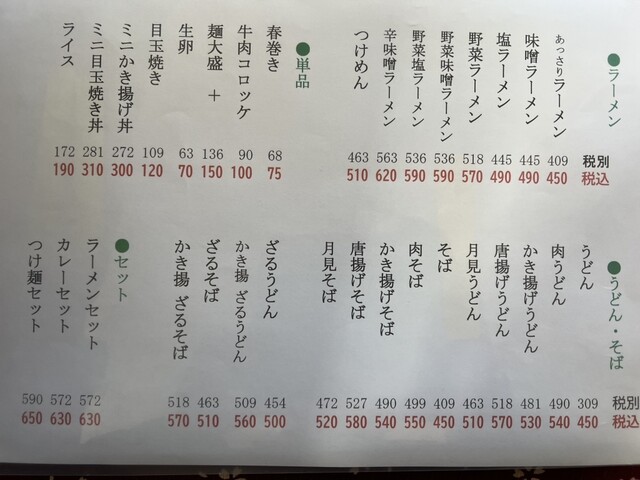 ●ラーメン
税別 税込
あっさりラーメン 409 450
味噌ラーメン 445 490
塩ラーメン 445 490
野菜ラーメン 518 570
野菜味噌ラーメン 536 590
野菜塩ラーメン 536 590
辛味噌ラーメン 563 620
つけめん 463 510
●単品
春巻き 68 75
牛肉コロッケ 90 100
麺大盛 + 136 150
生卵 63 70
目玉焼き 109 120
ミニかき揚げ丼 272 300
ミニ目玉焼き丼 281 310
ライス 172 190
●うどん・そば
税別 税込
うどん 309 450
肉うどん 490 540
かき揚げうどん 481 530
唐揚げうどん 518 570
月見うどん 463 510
そば 409 450
肉そば 499 550
かき揚げそば 490 540
唐揚げそば 527 580
月見そば 472 520
ざるうどん 454 500
かき揚 ざるうどん 509 560
ざるそば 463 510
かき揚 ざるそば 518 570
●セット
ラーメンセット 572 630
カレーセット 572 630
つけ麺セット 590 650